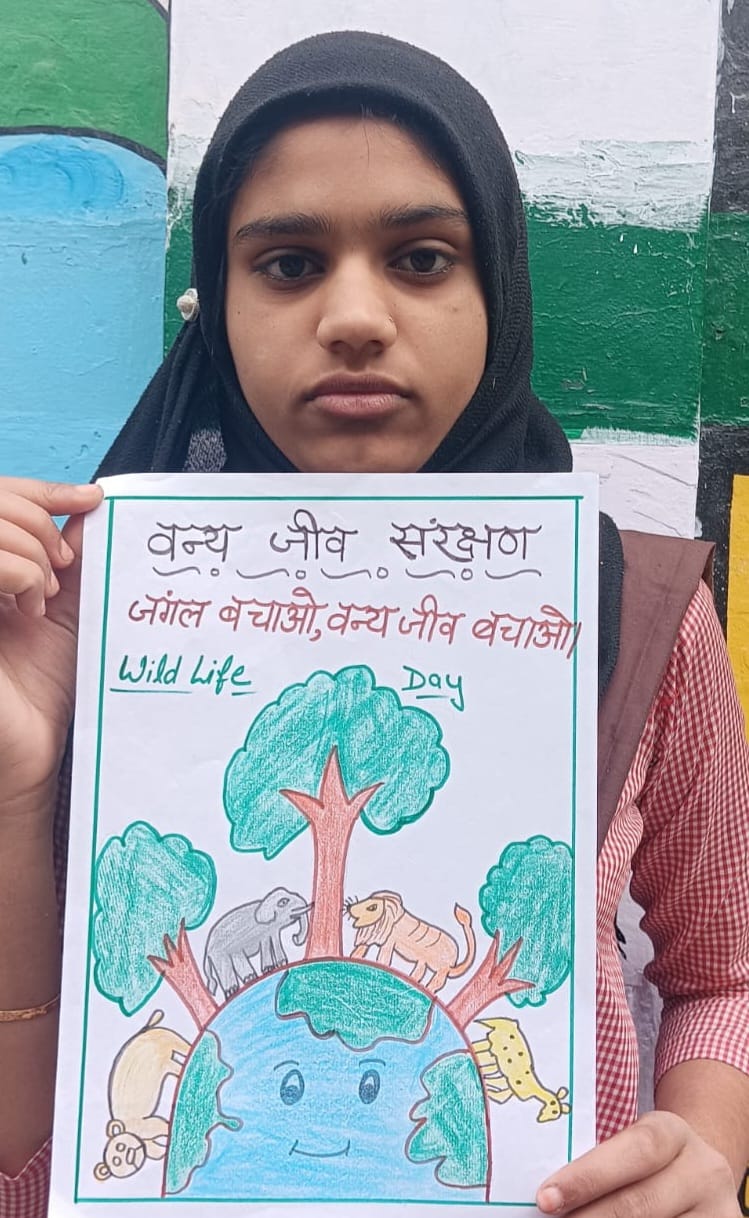 वन्य जीव संरक्षण
जंगल बचाओ, वन्य जीव बचाओ।
Wild Life Day